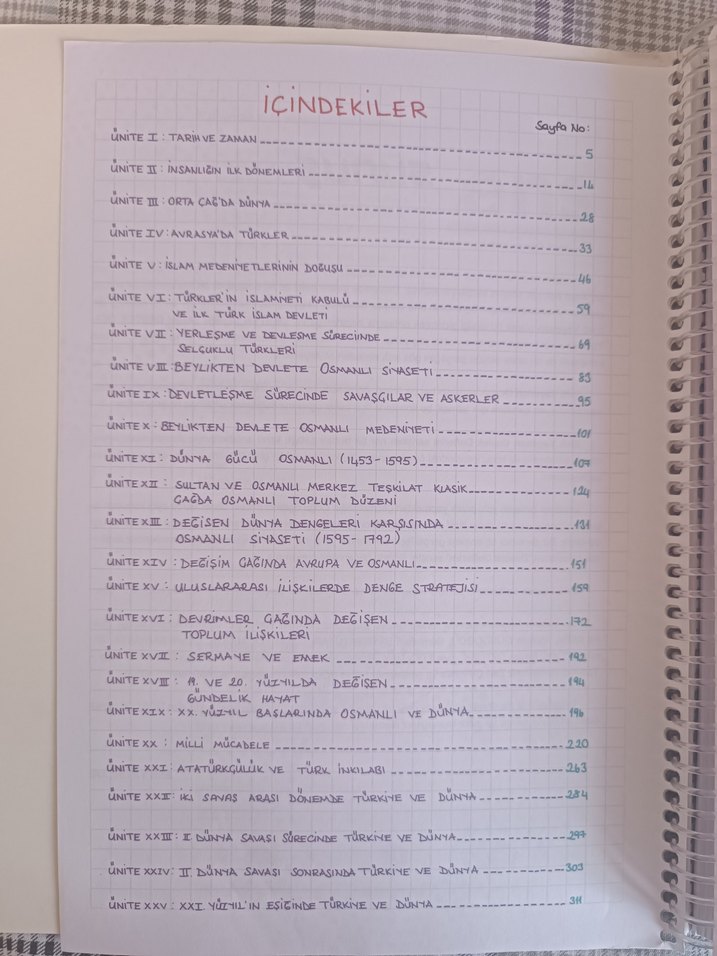 İÇİNDEKİLER
Sayfa No:
ÜNİTE I : TARİH VE ZAMAN ---------- 5
ÜNİTE II : İNSANLIĞIN İLK DÖNEMLERİ ---------- 14
ÜNİTE III : ORTA ÇAĞ'DA DÜNYA ---------- 28
ÜNİTE IV : AVRASYA'DA TÜRKLER ---------- 33
ÜNİTE V : İSLAM MEDENİYETLERİNİN DOĞUŞU ---------- 46
ÜNİTE VI : TÜRKLER'İN İSLAMİYETİ KABULÜ ---------- 59
VE İLK TÜRK İSLAM DEVLETİ
ÜNİTE VII : YERLEŞME VE DEVLEŞME SÜRECİNDE ---------- 69
SELÇUKLU TÜRKLERİ
ÜNİTE VIII : BEYLİKTEN DEVLETE OSMANLI SİYASETİ ---------- 83
ÜNİTE IX : DEVLETLEŞME SÜRECİNDE SAVAŞÇILAR VE ASKERLER ---------- 95
ÜNİTE X : BEYLİKTEN DEVLETE OSMANLI MEDENİYETİ ---------- 101
ÜNİTE XI : DÜNYA GÜCÜ OSMANLI (1453-1595) ---------- 107
ÜNİTE XII : SULTAN VE OSMANLI MERKEZ TEŞKİLAT KLASİK ----------
ÇAĞDA OSMANLI TOPLUM DÜZENİ
ÜNİTE XIII : DEĞİŞEN DÜNYA DENGELERİ KARŞISINDA ----------
OSMANLI SİYASETİ (1595-1792)
ÜNİTE XIV : DEĞİŞİM ÇAĞINDA AVRUPA VE OSMANLI ---------- 151
ÜNİTE XV : ULUSLARARASI İLİŞKİLERDE DENGE STRATEJİSİ ---------- 159
ÜNİTE XVI : DEVRİMLER ÇAĞINDA DEĞİŞEN ---------- 172
TOPLUM İLİŞKİLERİ
ÜNİTE XVII : SERMAYE VE EMEK ---------- 192
ÜNİTE XVIII : 19. VE 20. YÜZYILDA DEĞİŞEN ---------- 194
GÜNDELİK HAYAT
ÜNİTE XIX : XX. YÜZYIL BAŞLARINDA OSMANLI VE DÜNYA ---------- 196
ÜNİTE XX : MİLLİ MÜCADELE ---------- 220
ÜNİTE XXI : ATATÜRKÇÜLÜK VE TÜRK İNKILABI ---------- 263
ÜNİTE XXII : İKİ SAVAŞ ARASI DÖNEMDE TÜRKİYE VE DÜNYA ---------- 284
ÜNİTE XXIII : II. DÜNYA SAVAŞI SÜRECİNDE TÜRKİYE VE DÜNYA ---------- 297
ÜNİTE XXIV : II. DÜNYA SAVAŞI SONRASINDA TÜRKİYE VE DÜNYA ---------- 303
ÜNİTE XXV : XXI. YÜZYIL'IN EŞİĞİNDE TÜRKİYE VE DÜNYA ---------- 311